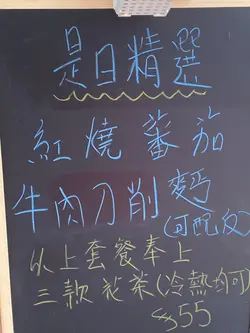 是日精選
紅燒蕃茄
牛肉刀削麥丐
(可配反)
以上套餐奉上
三款花茶(冷熱均可)
55